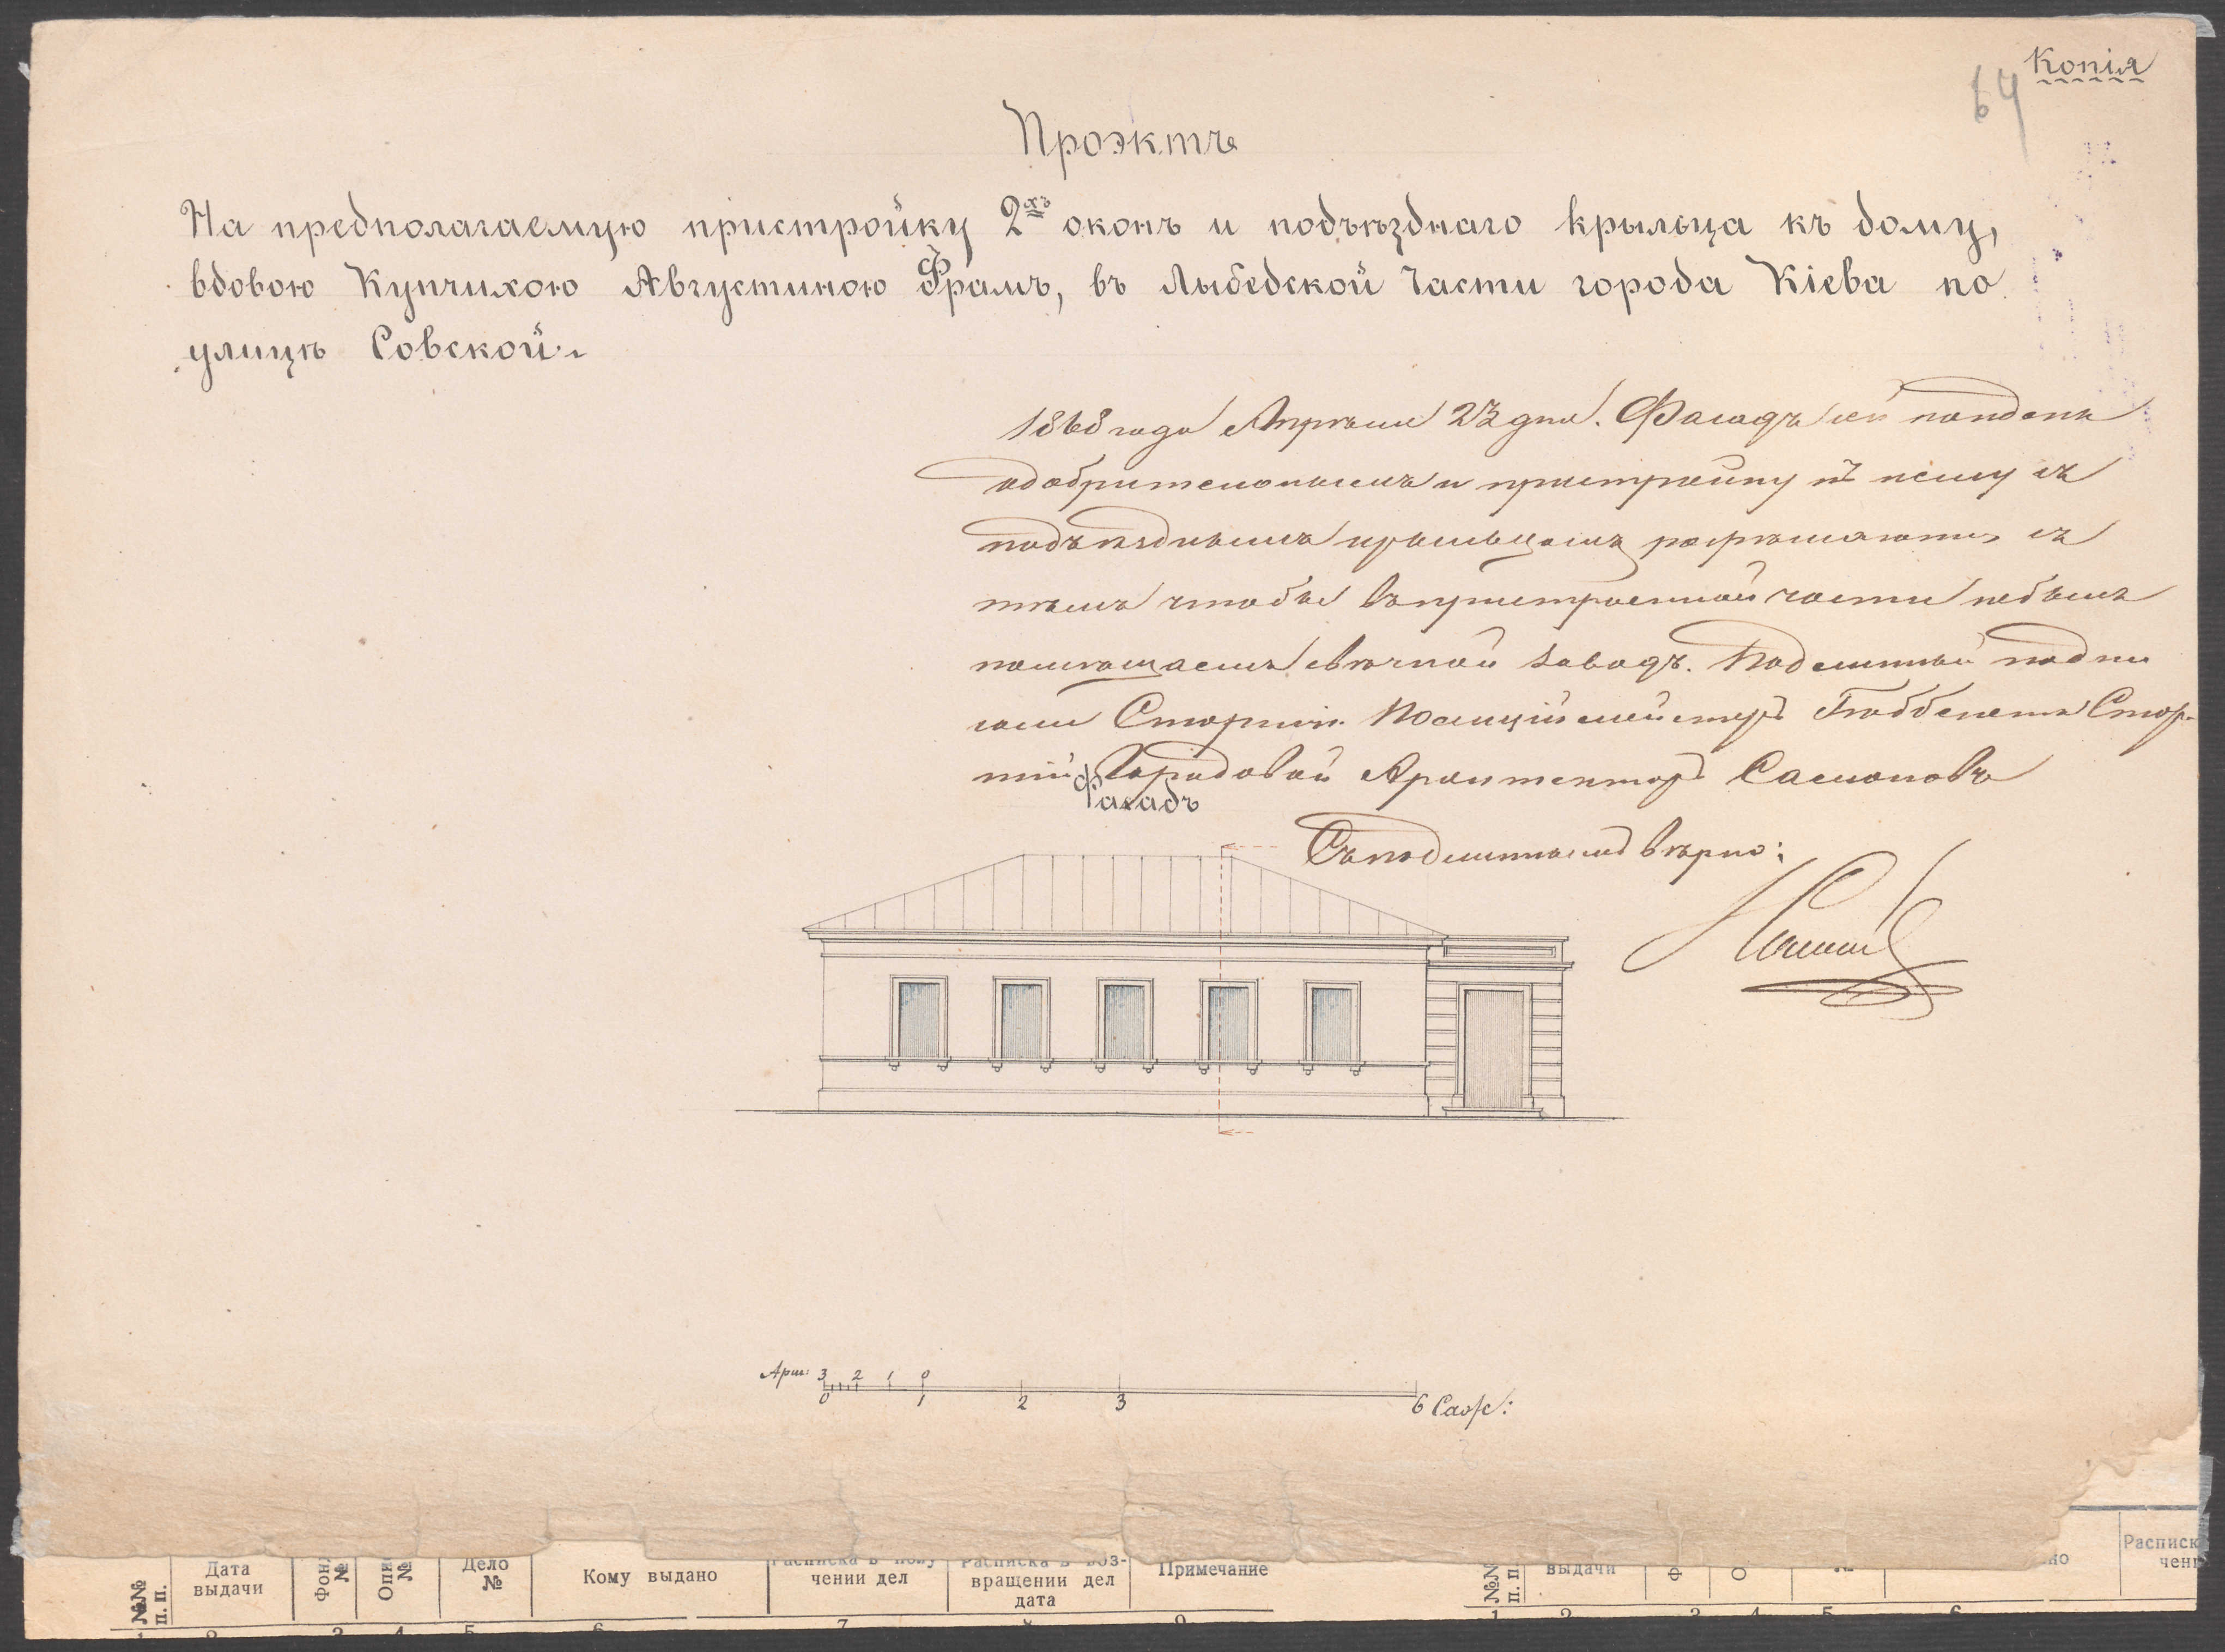 Копія
64
Проэктъ
На предполагаемую пристройку 2хъ оконъ и подъѣзднаго крыльца къ дому,
вдовою Купчихою Августиною Фрамъ, въ Лыбедской Части города Кіева по
улицѣ Совской.
1868 года Апрѣля 23 дня. Фасадъ сей найденъ
одобрительнымъ и пристройку къ нему съ
подъѣзднымъ крыльцомъ разрѣшается съ
тѣмъ чтобы въ пристроенной части небылъ
помѣщаемъ свѣчной заводъ. Подлинный подпи
сали Старшій Полиціймейстеръ Стар-
шій Городовой Архитекторъ
Фасадъ
Съ подлиннымъ вѣрно:
Арш: 3 2 1 0
0 1 2 3 6 Саж:
№№ п. п.
Дата выдачи
Фон №
Опи №
Дело №
Кому выдано
Расписка в полу-
чении дел
Расписка в воз-
вращении дел
дата
Примечание
№№ п. п.
выдачи
Расписк
чен